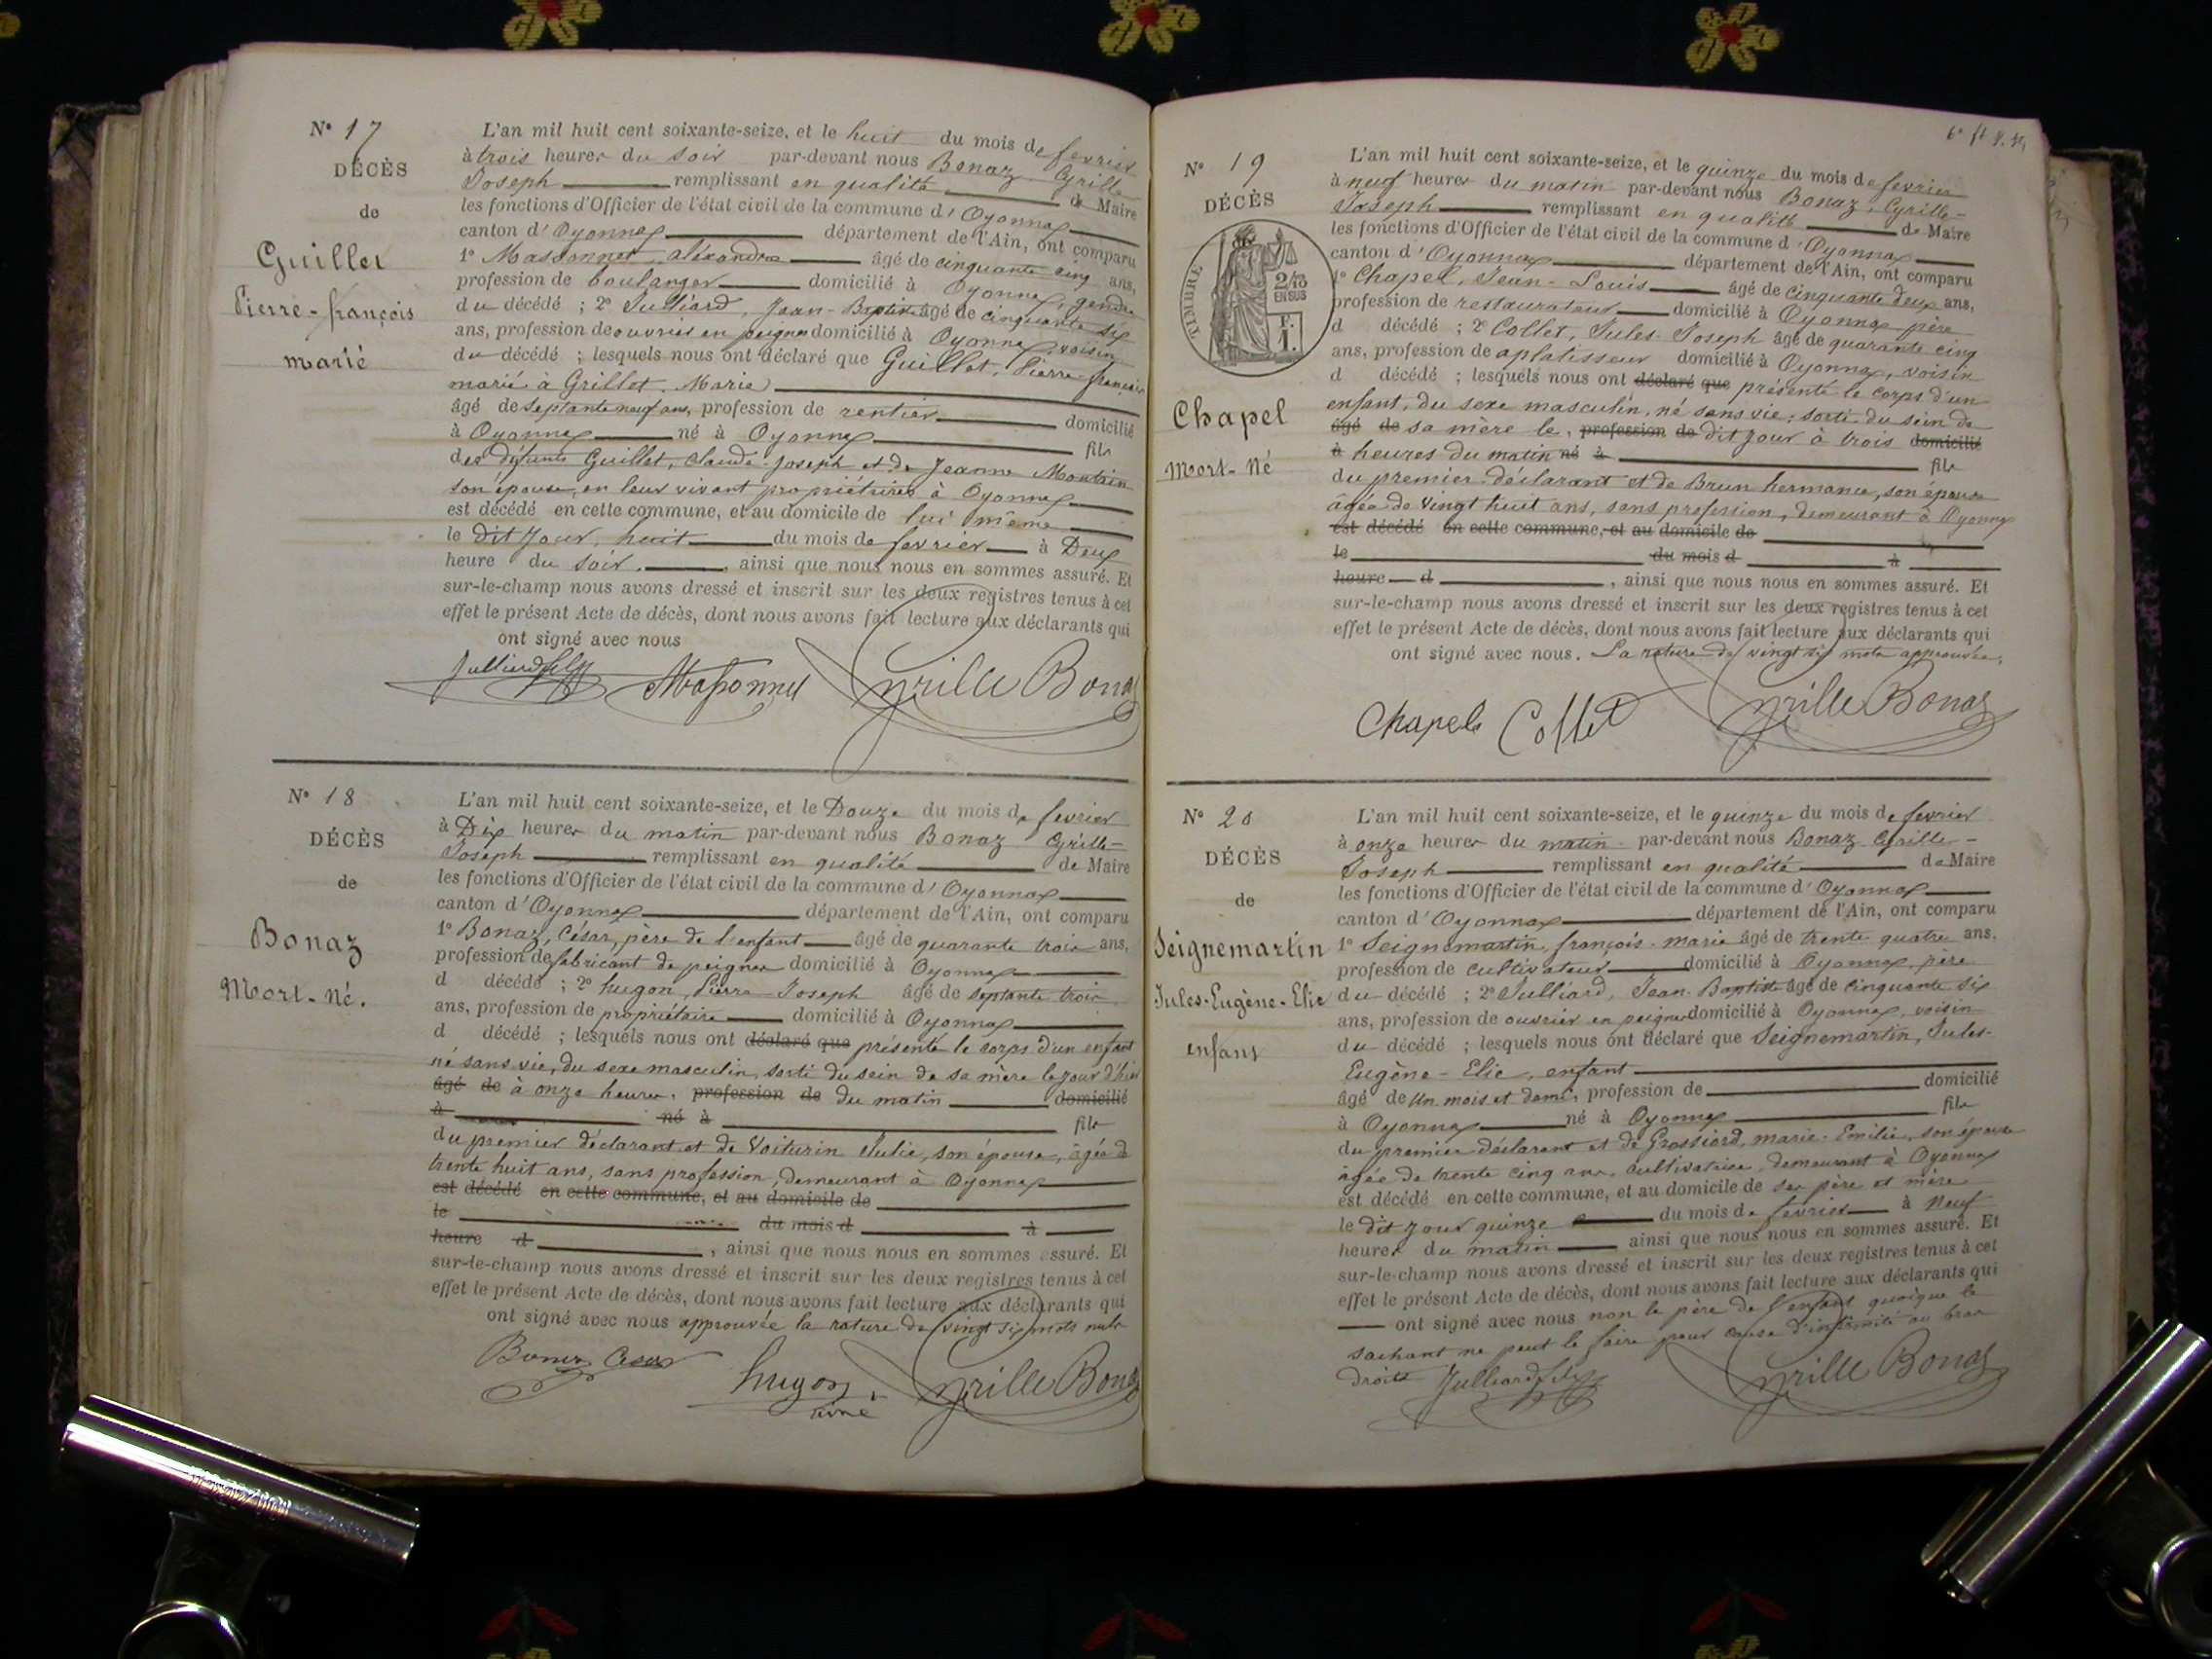 N° 17
DÉCÈS
de
Guillet
Pierre-françois
marié
L'an mil huit cent soixante-seize, et le huit du mois de fevrier
à trois heures du soir par-devant nous Bonaz Cyrille
Joseph remplissant en qualité de Maire
les fonctions d'Officier de l'état civil de la commune d'Oyonnax
canton d'Oyonnax département de l'Ain, ont comparu
1° Massonnet alexandre âgé de cinquante cinq ans,
profession de boulanger domicilié à Oyonnax, gendre
du décédé ; 2° Julliard, Jean-Baptiste âgé de cinquante six
ans, profession de ouvrier en peignes domicilié à Oyonnax, voisin
du décédé ; lesquels nous ont déclaré que Guillet, Pierre-françois
marié à Grillet, Marie
âgé de septante neuf ans, profession de rentier domicilié
à Oyonnax né à Oyonnax fils
des défunts Guillet, Claude-joseph et de Jeanne
son épouse, en leur vivant propriétaires à Oyonnax
est décédé en cette commune, et au domicile de lui même
le dit jour, huit du mois de fevrier à Deux
heure du soir, ainsi que nous nous en sommes assuré. Et
sur-le-champ nous avons dressé et inscrit sur les deux registres tenus à cet
effet le présent Acte de décès, dont nous avons fait lecture aux déclarants qui
ont signé avec nous
Julliard fils Massonnet Cyrille Bonaz
N° 18
DÉCÈS
de
Bonaz
Mort-né.
L'an mil huit cent soixante-seize, et le Douze du mois de fevrier
à Dix heures du matin par-devant nous Bonaz Cyrille-
Joseph remplissant en qualité de Maire
les fonctions d'Officier de l'état civil de la commune d'Oyonnax
canton d'Oyonnax département de l'Ain, ont comparu
1° Bonaz, César, père de l'enfant âgé de quarante trois ans,
profession de fabricant de peignes domicilié à Oyonnax
d décédé ; 2° hugon, Pierre Joseph âgé de septante trois
ans, profession de propriétaire domicilié à Oyonnax
d décédé ; lesquels nous ont déclaré que présenté le corps d'un enfant
né sans vie, du sexe masculin, sorti du sein de sa mère le jour d'hier
âgé de à onze heures, profession de du matin domicilié
à né à fils
du premier déclarant et de Voiturin Julie, son épouse, âgée de
trente huit ans, sans profession, demeurant à Oyonnax
est décédé en cette commune, et au domicile de
le du mois d à
heure d , ainsi que nous nous en sommes assuré. Et
sur-le-champ nous avons dressé et inscrit sur les deux registres tenus à cet
effet le présent Acte de décès, dont nous avons fait lecture aux déclarants qui
ont signé avec nous approuvée la rature de vingt six mots nuls
Bonaz Cesar hugon Cyrille Bonaz
N° 19
DÉCÈS
TIMBRE
2/10
EN SUS
Chapel
Mort-né
L'an mil huit cent soixante-seize, et le quinze du mois de fevrier
à neuf heures du matin par-devant nous Bonaz, Cyrille-
Joseph remplissant en qualité de Maire
les fonctions d'Officier de l'état civil de la commune d'Oyonnax
canton d'Oyonnax département de l'Ain, ont comparu
1° Chapel, Jean-Louis âgé de cinquante deux ans,
profession de restaurateur domicilié à Oyonnax père
d décédé ; 2° Collet, Jules-Joseph âgé de quarante cinq
ans, profession de aplatisseur domicilié à Oyonnax, voisin
d décédé ; lesquels nous ont déclaré que présenté le corps d'un
enfant, du sexe masculin, né sans vie, sorti du sein de
âgé de sa mère le, profession de dit jour à trois domicilié
à heures du matin né à fils
du premier déclarant et de Brun hermance, son épouse
âgée de vingt huit ans, sans profession, demeurant à Oyonnax
est décédé en cette commune, et au domicile de
le du mois d à
heure d , ainsi que nous nous en sommes assuré. Et
sur-le-champ nous avons dressé et inscrit sur les deux registres tenus à cet
effet le présent Acte de décès, dont nous avons fait lecture aux déclarants qui
ont signé avec nous. La rature de vingt six mots approuvée.
Chapel Collet Cyrille Bonaz
N° 20
DÉCÈS
de
Seignemartin
Jules-Eugène-Elie
enfant
L'an mil huit cent soixante-seize, et le quinze du mois de fevrier
à onze heures du matin par-devant nous Bonaz Cyrille-
Joseph remplissant en qualité de Maire
les fonctions d'Officier de l'état civil de la commune d'Oyonnax
canton d'Oyonnax département de l'Ain, ont comparu
1° Seignemartin, françois-marie âgé de trente quatre ans,
profession de cultivateur domicilié à Oyonnax, père
du décédé ; 2° Julliard, Jean-Baptiste âgé de cinquante six
ans, profession de ouvrier en peignes domicilié à Oyonnax, voisin
du décédé ; lesquels nous ont déclaré que Seignemartin, Jules-
Eugène-Elie, enfant
âgé de un mois et demi, profession de domicilié
à Oyonnax né à Oyonnax fils
du premier déclarant et de Grossiord, marie-Emilie, son épouse
âgée de trente cinq ans, cultivatrice, demeurant à Oyonnax
est décédé en cette commune, et au domicile de ses père et mère
le dit jour quinze du mois de fevrier à Neuf
heures du matin ainsi que nous nous en sommes assuré. Et
sur-le-champ nous avons dressé et inscrit sur les deux registres tenus à cet
effet le présent Acte de décès, dont nous avons fait lecture aux déclarants qui
ont signé avec nous non le père de l'enfant quoique le
sachant ne peut le faire pour cause d'infirmité au bras
droit Julliard fils Cyrille Bonaz